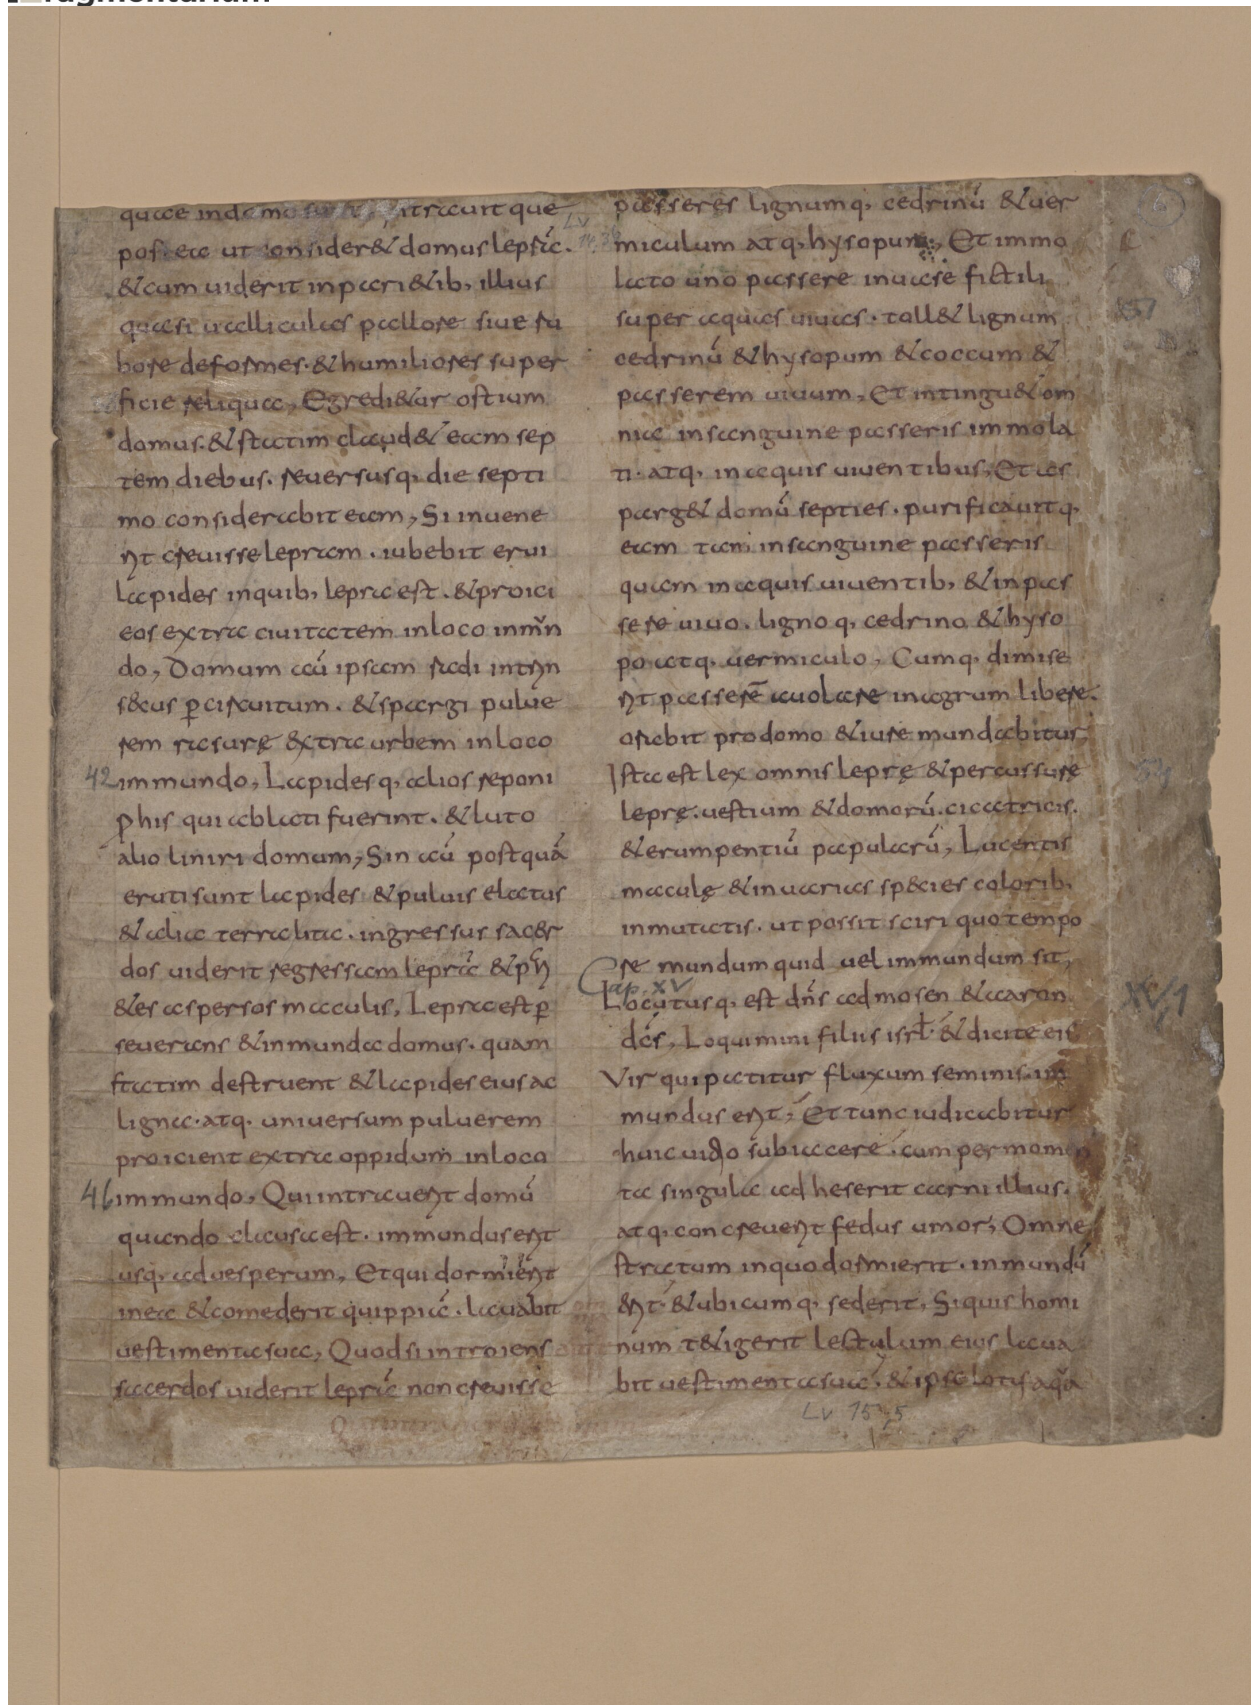 quae in domo itrauit que
postea ut consider& domus leprā.
& cum uiderit inparı&ib, illius
quasi ualliculas pallore siue ru
bore deformes. & humiliores super
ficie reliqua, Egredi&ur ostium
domus. & statim claud& eam sep
tem diebus. reuersusq, die septi
mo considerabit eam, Si inuene
rıt creuisse lepram. iubebit erui
lapides inquib, lepra est. & proici
eos extra ciuitatem inloco inmun
do, Domum aū ipsam radi intrin
s&us ꝑ circuitum. & spargi pulue
rem rasurę &xtra urbem inloco
42 immundo, Lapidesq, alios reponi
ꝑ his qui ablati fuerint. & luto
alio liniri domum, Sin aū postquā
eruti sunt lapides & puluis elatus
& alia terra lita. ingressus sac&r
dos uiderit regressam leprā &
& respersos maculis, Lepra est ꝑ
seuerans & inmunda domus. quam
statim destruent & lapides eius ac
ligna. atq, uniuersum puluerem
proicient extra oppidum inloco
46 immundo, Qui intrauerit domū
quando clausa est. immundus erit
usq, ad uesperum, Et qui dormierit
in ea & comederit quippiā. lauabit
uestimenta sua, Quod si introiens
sacerdos uiderit leprā non creuisse
passeres lignumq, cedrinū & uer
miculum atq, hysopum, Et immo
lato uno passere inuase fictili
super aquas uiuas. toll& lignum
cedrinū & hysopum & coccum &
passerem uiuum, Et intingu& om
nia insanguine passeris immola
ti. atq, inaquis uiuentibus, Et as
parg& domū septies. purificauitq,
eam tam insanguine passeris
quam inaquis uiuentib, & inpas
sere uiuo. lignoq, cedrino & hyso
po atq, uermiculo, Cumq, dimise
rit passerē auolare inagrum libere.
orabit prodomo & iure mundabitur,
Ista est lex omnis leprę & percussurę
leprę. uestium & domorū. cicatricis.
& erumpentiū papularū, Lucentis
maculę & inuarias sp&ies colorib,
inmutatis. ut possit sciri quo tempo
re mundum quid uel immundum sit,
Cap. XV
Locutusq, est dn̄s ad mosen & aaron XV, 1
dc̄s, Loquimini filiis isrł. & dicite eis
Vir qui patitur fluxum seminis. in
mundus erit, Et tunc iudicabitur
huic uitio subiacere. cum per momen
ta singula adheserit carni illius.
atq, concreuerit fedus umor, Omne
stratum inquo dormierit. inmundū
erit. & ubicumq, sederit, Si quis homi
num t&igerit lectulum eius laua
bit uestimenta sua. & ipse lotus aqua
Lv 15,5